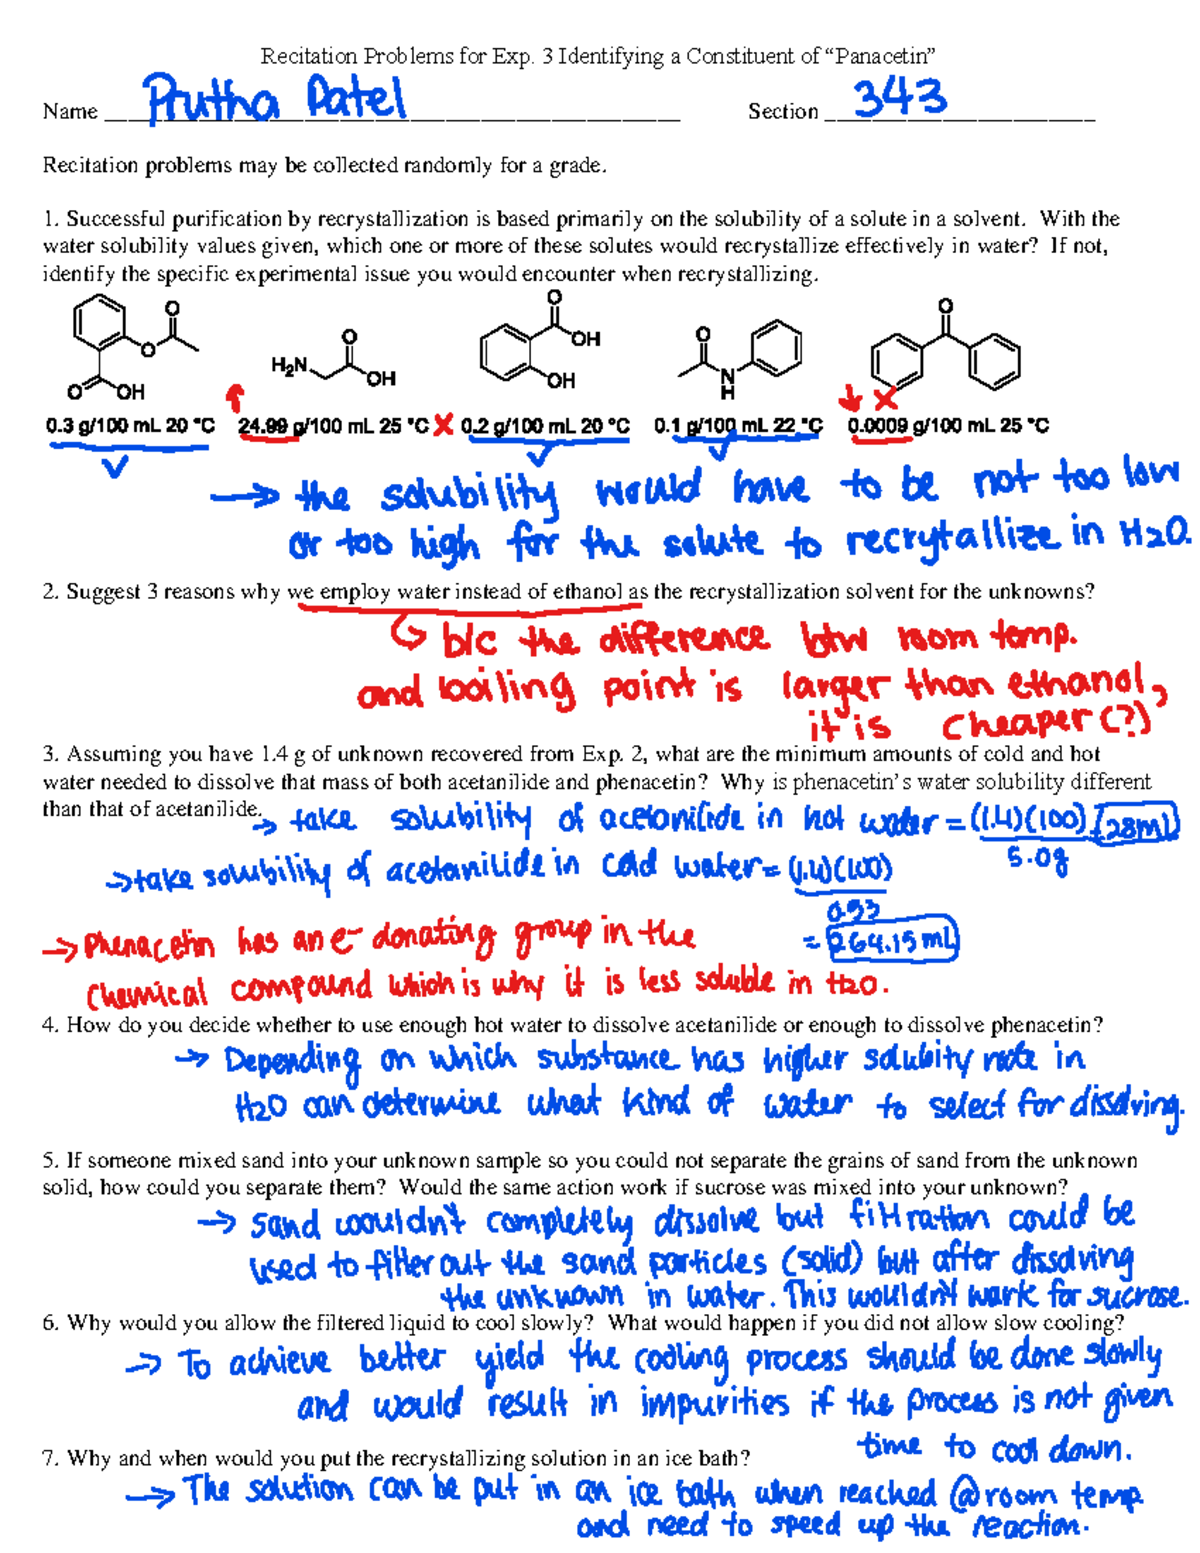 Recitation Problems for Exp. 3 Identifying a Constituent of “Panacetin”
Name Prutha Patel Section 343
Recitation problems may be collected randomly for a grade.
1. Successful purification by recrystallization is based primarily on the solubility of a solute in a solvent. With the
water solubility values given, which one or more of these solutes would recrystallize effectively in water? If not,
identify the specific experimental issue you would encounter when recrystallizing.
O O OH O H2N O OH O OH OH O N H O
O OH
0.3 g/100 mL 20 °C 24.99 g/100 mL 25 °C 0.2 g/100 mL 20 °C 0.1 g/100 mL 22 °C 0.0009 g/100 mL 25 °C
→ the solubility would have to be not too low
or too high for the solute to recrytallize in H2O.
2. Suggest 3 reasons why we employ water instead of ethanol as the recrystallization solvent for the unknowns?
b/c the difference btw room temp.
and boiling point is larger than ethanol,
it is cheaper (?)
3. Assuming you have 1.4 g of unknown recovered from Exp. 2, what are the minimum amounts of cold and hot
water needed to dissolve that mass of both acetanilide and phenacetin? Why is phenacetin’s water solubility different
than that of acetanilide.
→ take solubility of acetanilide in hot water = (1.4)(100) 28ml
5.0g
→ take solubility of acetanilide in cold water = (1.4)(100)
0.53
= 264.15 mL
→ Phenacetin has an e- donating group in the
chemical compound which is why it is less soluble in H2O.
4. How do you decide whether to use enough hot water to dissolve acetanilide or enough to dissolve phenacetin?
→ Depending on which substance has higher solubity note in
H2O can determine what kind of water to select for dissolving.
5. If someone mixed sand into your unknown sample so you could not separate the grains of sand from the unknown
solid, how could you separate them? Would the same action work if sucrose was mixed into your unknown?
→ Sand wouldn't completely dissolve but filtration could be
used to filter out the sand particles (solid) but after dissolving
the unknown in water. This wouldn't work for sucrose.
6. Why would you allow the filtered liquid to cool slowly? What would happen if you did not allow slow cooling?
→ To achieve better yield the cooling process should be done slowly
and would result in impurities if the process is not given
time to cool down.
7. Why and when would you put the recrystallizing solution in an ice bath?
→ The solution can be put in an ice bath when reached @ room temp
and need to speed up the reaction.